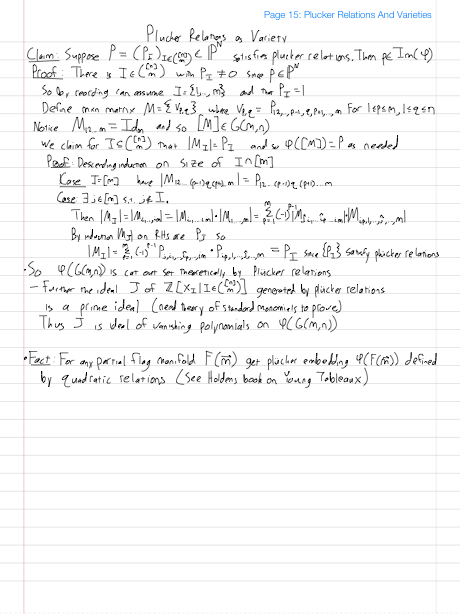 Page 15: Plucker Relations And Varieties
Plucker Relations as Variety
Claim: Suppose P = (P_I)_{I∈([n] m)} ∈ ℙ^N satisfies plucker relations. Then p∈ Im(φ)
Proof: There is I∈([n] m) with P_I ≠ 0 since p∈ℙ^N
So by reording can assume I={1,..,m} and that P_I=1
Define mxn matrix M={V_{p,q}} where V_{p,q} = P_{12,..,p-1,q,p+1,..,m} for 1≤p≤m, 1≤q≤n
Notice M_{12...m} = Id_m and so [M]∈G(m,n)
We claim for I⊆([n] m) that |M_I|= P_I and so φ([M])=P as needed
Proof: Descending induction on size of I∩[m]
Case I=[m] have
Case ∃ j∈[m] s.t. j∉ I.
By induction |M_J| on RHS are P_J so
= P_I since {P_I} satisfy plucker relations
· So φ(G(m,n)) is cut out set theoretically by Plucker relations
– Further the ideal J of ℤ[X_I | I∈([n] m)] generated by plucker relations
is a prime ideal (need theory of standard monomials to prove)
Thus J is ideal of vanishing polynomials on φ(G(m,n))
· Fact: For any partial flag manifold F(m⃗) get plucker embedding φ(F(m⃗)) defined
by quadratic relations (See book on Young Tableaux)